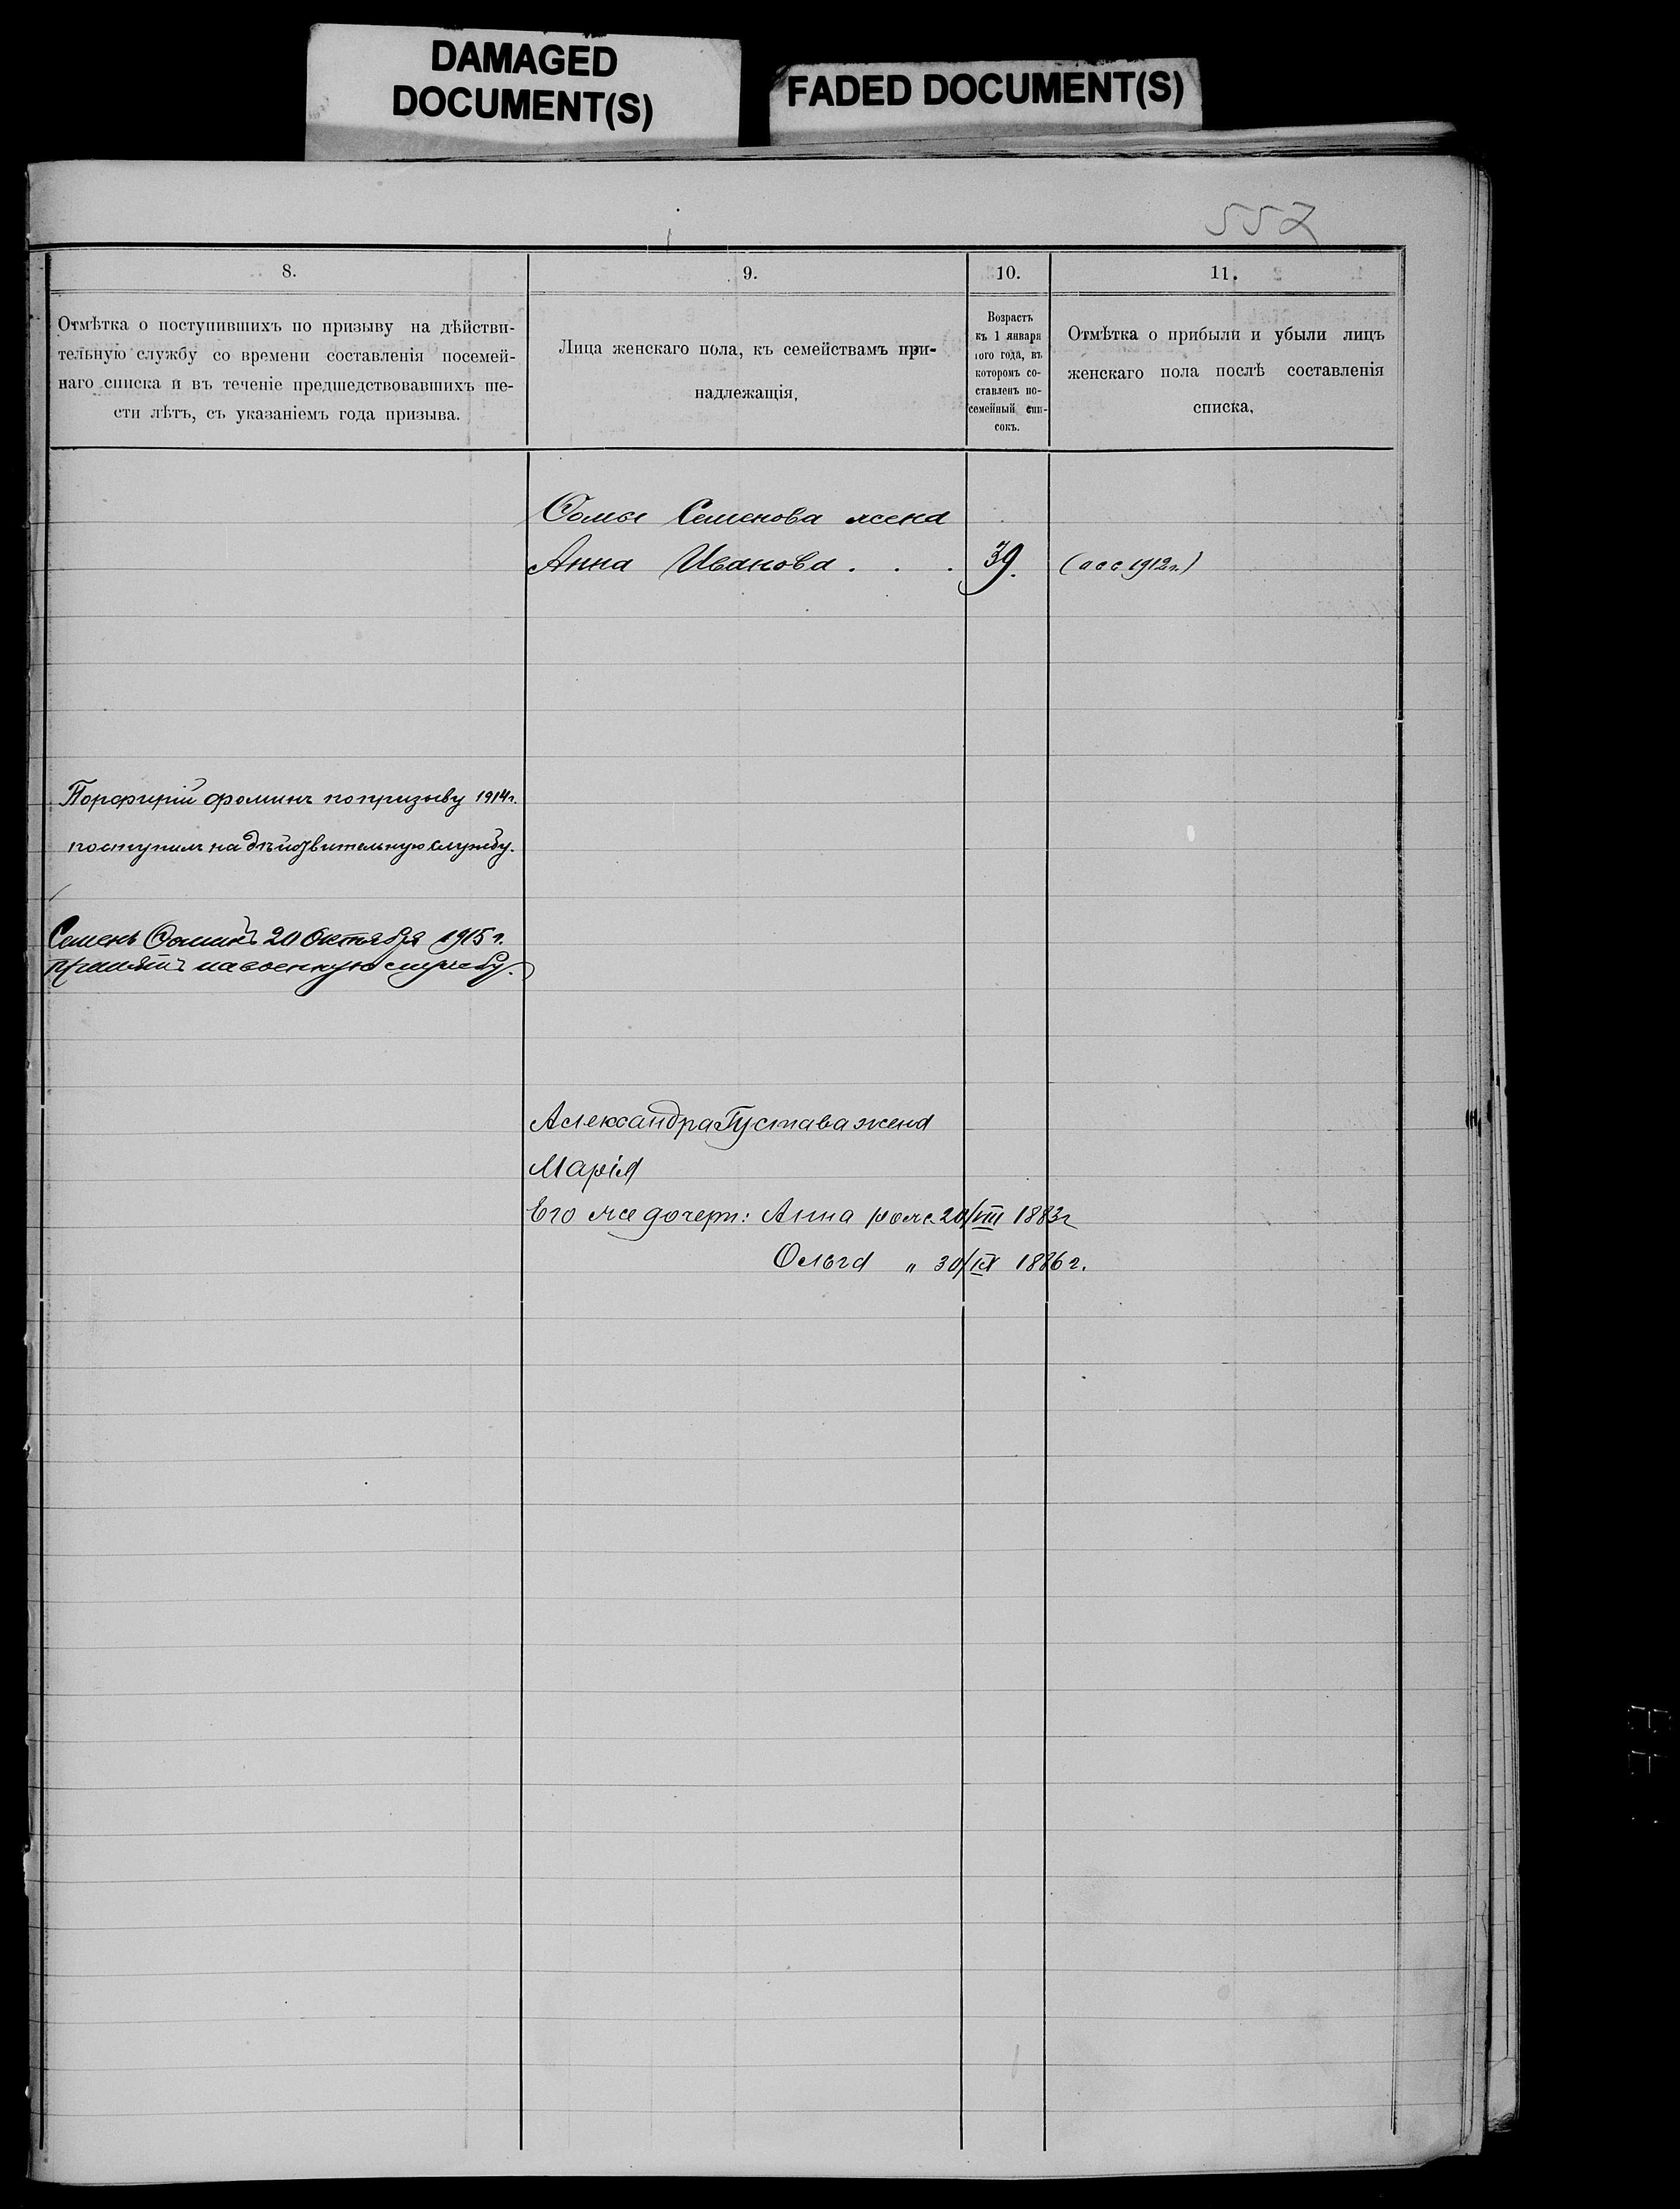 DAMAGED
DOCUMENT(S)
FADED DOCUMENT(S)
557
8.
9.
10.
11.
Отмѣтка о поступившихъ по призыву на дѣйстви-
тельную службу со времени составленія посемей-
наго списка и въ теченіе предшедствовавшихъ ше-
сти лѣтъ, съ указаніемъ года призыва.
Лица женскаго пола, къ семействамъ при-
надлежащія,
Возрастъ
къ 1 января
того года, въ
которомъ со-
ставленъ по-
семейный спи-
сокъ.
Отмѣтка о прибыли и убыли лицъ
женскаго пола послѣ составленія
списка,
Ѳомы Семенова жена
Анна Иванова . . . 39. (асс 1912г.)
Порфирій Фоминъ по призыву 1914г.
поступилъ на дѣйствительную службу.
Семенъ Ѳоминъ 20 Октября 1915 г.
принятъ на военную службу.
Александра Густава жена
Марія
Его же дочери: Анна рож. 20/VIII 1883г
Ольга " 30/IX 1886 г.